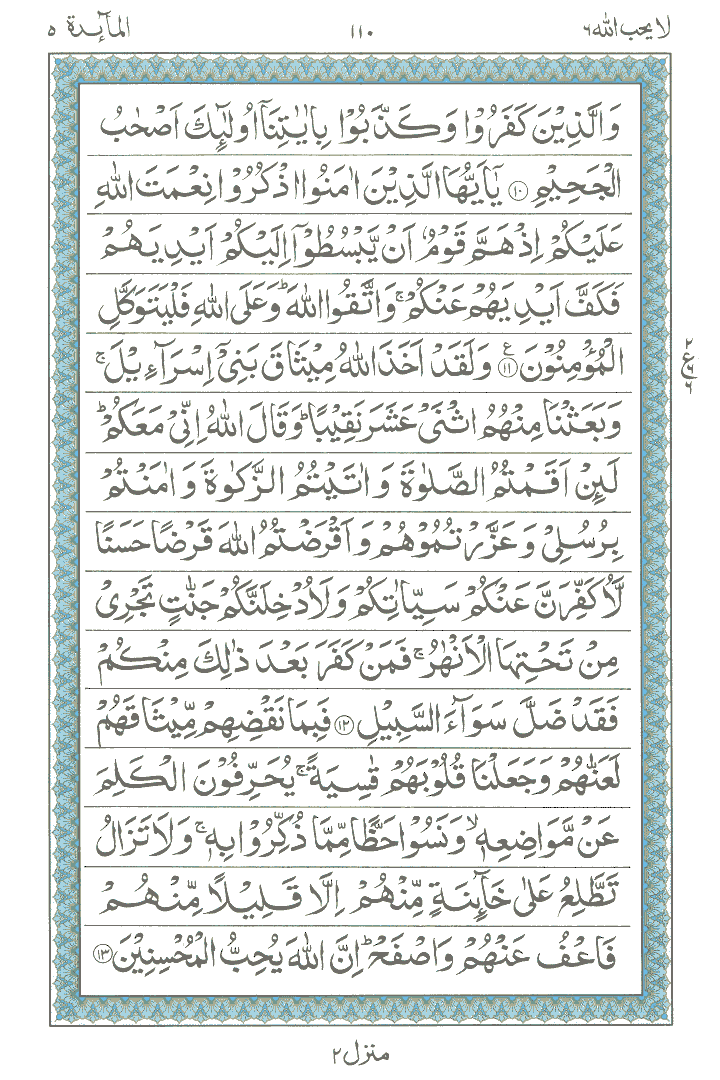 لا یحب الله ۶
۱۱۰
المآئدة ۵
وَالَّذِیْنَ كَفَرُوْا وَكَذَّبُوْا بِاٰیٰتِنَاۤ اُولٰٓىِٕكَ اَصْحٰبُ
الْجَحِیْمِ ۝۱۰ یٰۤاَیُّهَا الَّذِیْنَ اٰمَنُوا اذْكُرُوْا نِعْمَتَ اللهِ
عَلَیْكُمْ اِذْ هَمَّ قَوْمٌ اَنْ یَّبْسُطُوْۤا اِلَیْكُمْ اَیْدِیَهُمْ
فَكَفَّ اَیْدِیَهُمْ عَنْكُمْ ۚ وَاتَّقُوا اللهَ ؕ وَعَلَی اللهِ فَلْیَتَوَكَّلِ
الْمُؤْمِنُوْنَ ۝۱۱ ع وَلَقَدْ اَخَذَ اللهُ مِیْثَاقَ بَنِیْۤ اِسْرَآءِیْلَ ۚ
وَبَعَثْنَا مِنْهُمُ اثْنَیْ عَشَرَ نَقِیْبًا ؕ وَقَالَ اللهُ اِنِّیْ مَعَكُمْ ؕ
لَىِٕنْ اَقَمْتُمُ الصَّلٰوةَ وَاٰتَیْتُمُ الزَّكٰوةَ وَاٰمَنْتُمْ
بِرُسُلِیْ وَعَزَّرْتُمُوْهُمْ وَاَقْرَضْتُمُ اللهَ قَرْضًا حَسَنًا
لَّاُكَفِّرَنَّ عَنْكُمْ سَیِّاٰتِكُمْ وَلَاُدْخِلَنَّكُمْ جَنّٰتٍ تَجْرِیْ
مِنْ تَحْتِهَا الْاَنْهٰرُ ۚ فَمَنْ كَفَرَ بَعْدَ ذٰلِكَ مِنْكُمْ
فَقَدْ ضَلَّ سَوَآءَ السَّبِیْلِ ۝۱۲ فَبِمَا نَقْضِهِمْ مِّیْثَاقَهُمْ
لَعَنّٰهُمْ وَجَعَلْنَا قُلُوْبَهُمْ قٰسِیَةً ۚ یُحَرِّفُوْنَ الْكَلِمَ
عَنْ مَّوَاضِعِهٖ ۙ وَنَسُوْا حَظًّا مِّمَّا ذُكِّرُوْا بِهٖ ۚ وَلَا تَزَالُ
تَطَّلِعُ عَلٰی خَآىِٕنَةٍ مِّنْهُمْ اِلَّا قَلِیْلًا مِّنْهُمْ
فَاعْفُ عَنْهُمْ وَاصْفَحْ ؕ اِنَّ اللهَ یُحِبُّ الْمُحْسِنِیْنَ ۝۱۳
۲
ع ۶
۶
منزل ۲